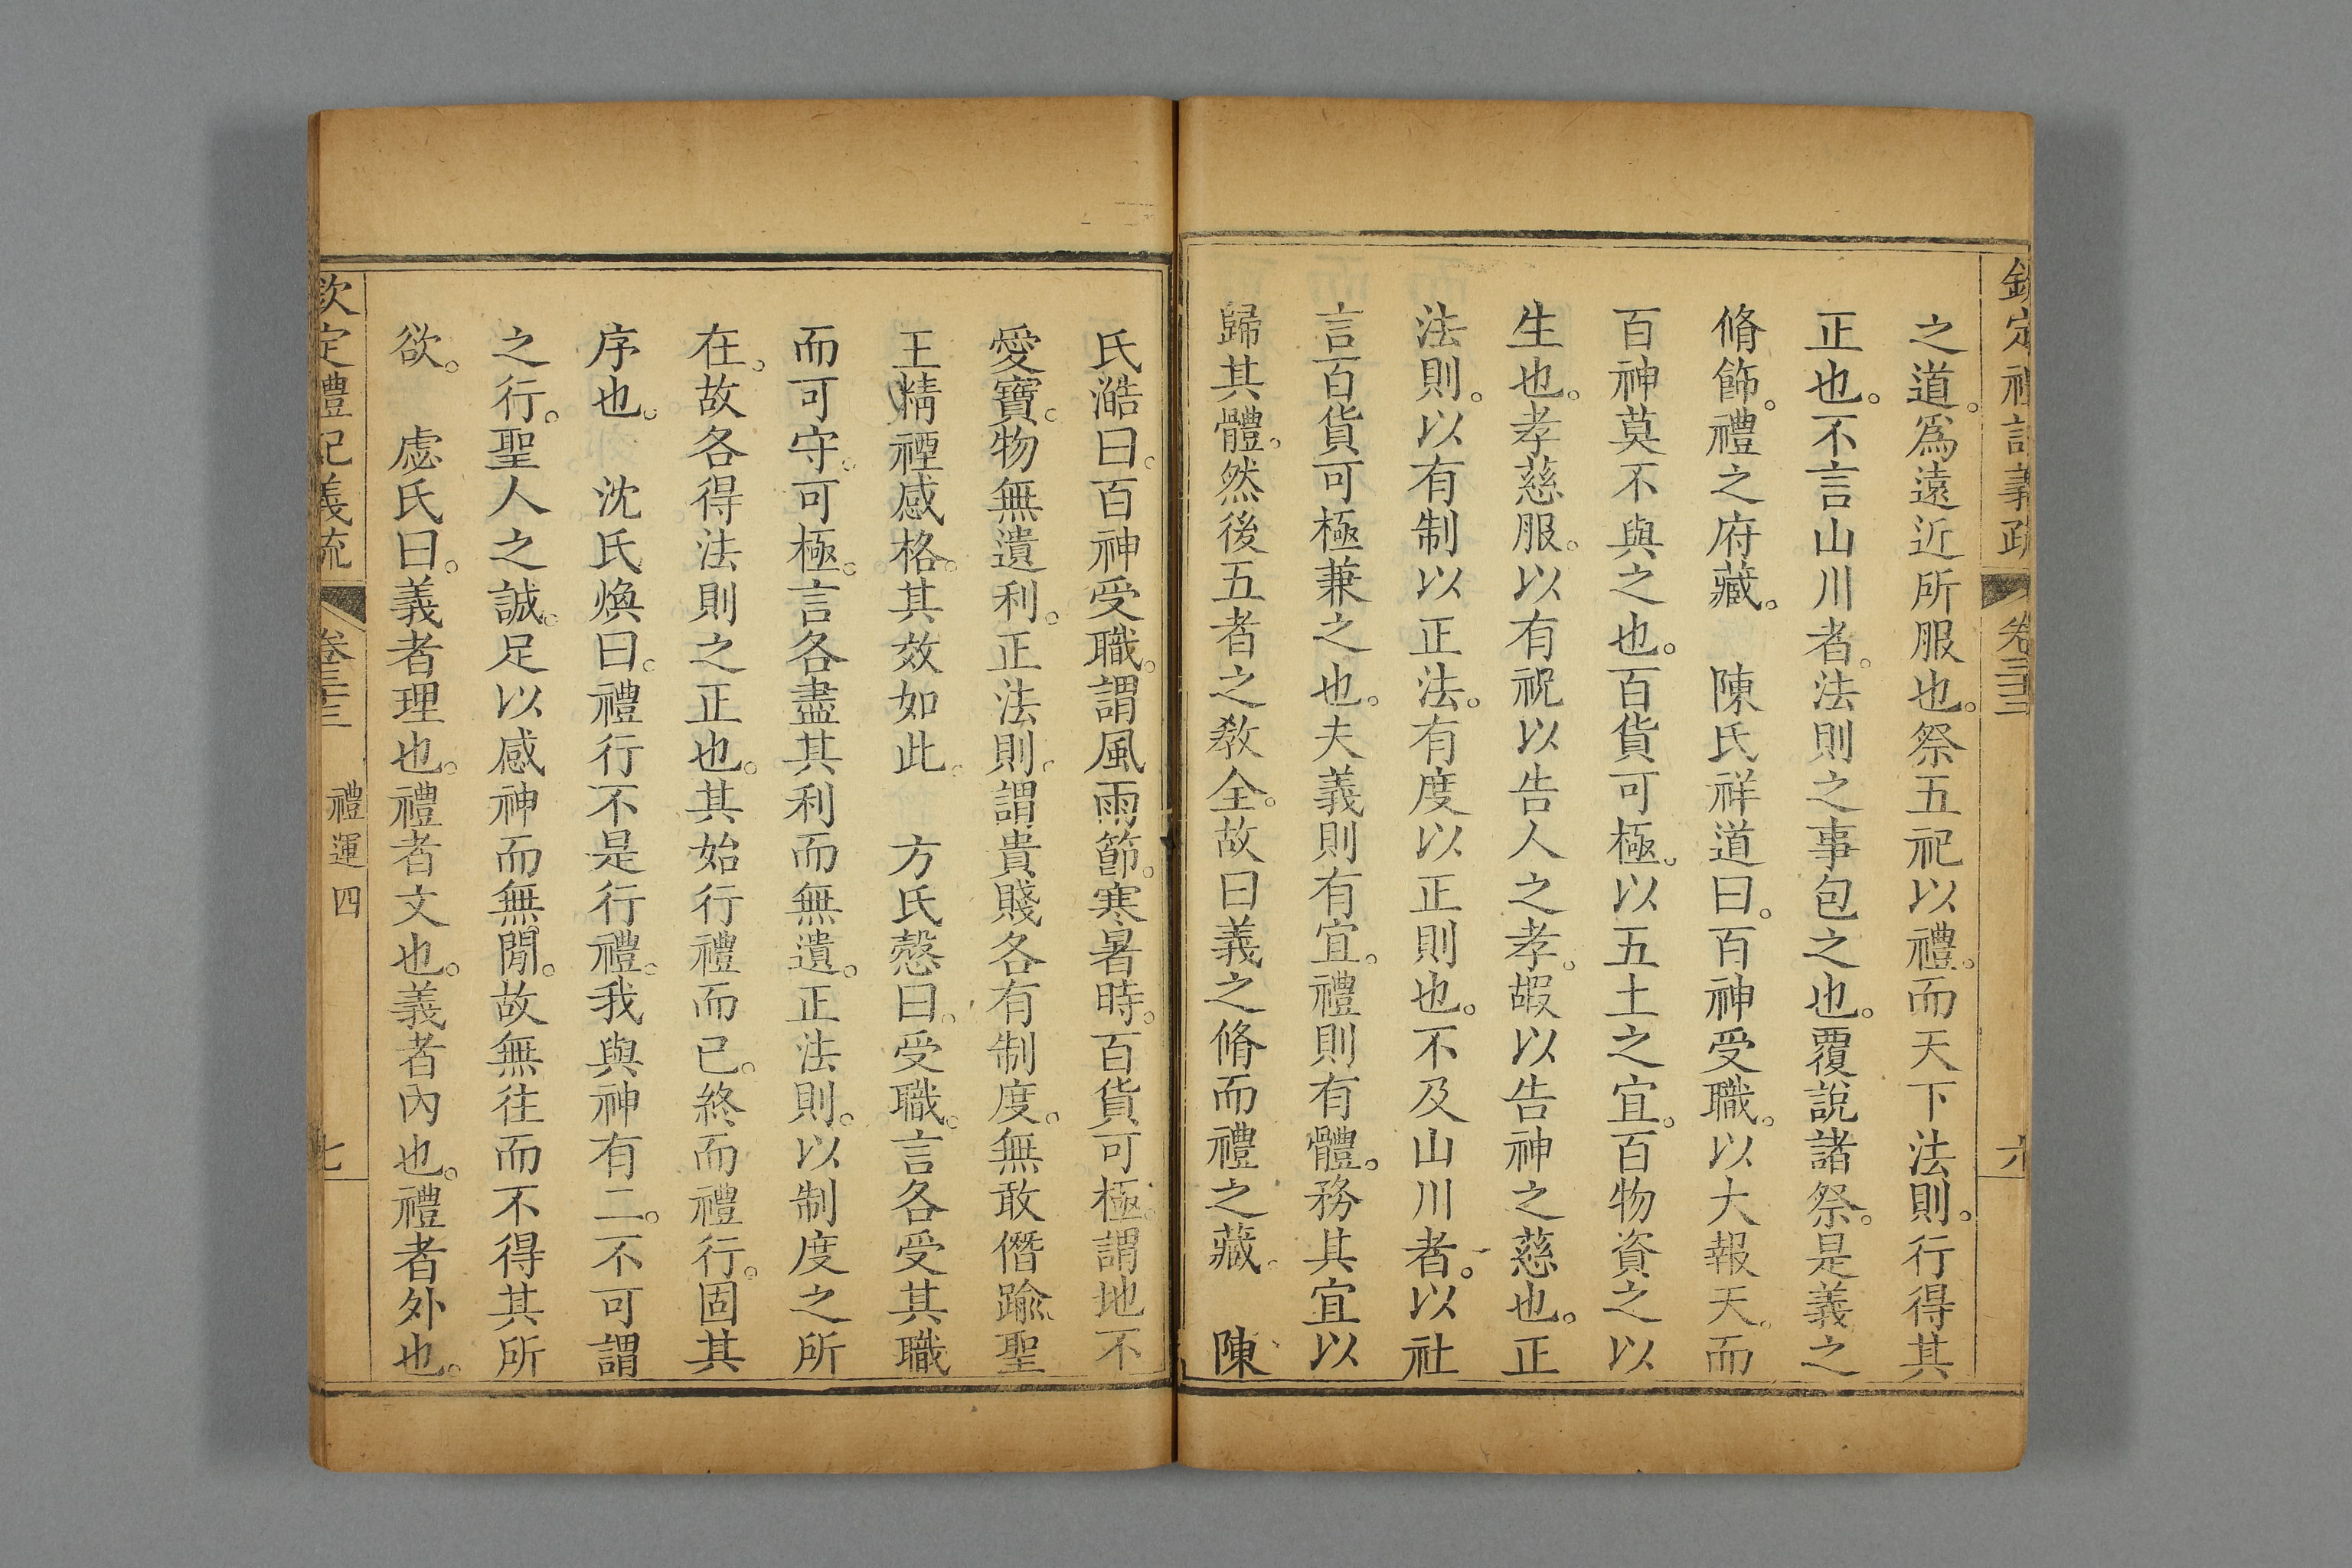 欽定禮記義疏 卷三十三 六
之道。爲遠近所服也。祭五祀以禮。而天下法則。行得其
正也。不言山川者。法則之事包之也。覆說諸祭。是義之
脩飾。禮之府藏。 陳氏祥道曰。百神受職。以大報天。而
百神莫不與之也。百貨可極。以五土之宜。百物資之以
生也。孝慈服。以有祝以告人之孝。嘏以告神之慈也。正
法則。以有制以正法。有度以正則也。不及山川者。以社
言百貨可極兼之也。夫義則有宜。禮則有體。務其宜以
歸其體。然後五者之敎全。故曰義之脩而禮之藏。 陳
氏澔曰。百神受職。謂風雨節。寒暑時。百貨可極。謂地不
愛寶。物無遺利。正法則。謂貴賤各有制度。無敢僭踰。聖
王精禋感格。其效如此。 方氏慤曰。受職。言各受其職
而可守。可極。言各盡其利而無遺。正法則。以制度之所
在。故各得法則之正也。其始行禮而已。終而禮行。固其
序也。 沈氏煥曰。禮行不是行禮。我與神有二。不可謂
之行。聖人之誠。足以感神而無閒。故無往而不得其所
欲。 處氏曰。義者理也。禮者文也。義者內也。禮者外也。
欽定禮記義疏 卷三十三 禮運四 七